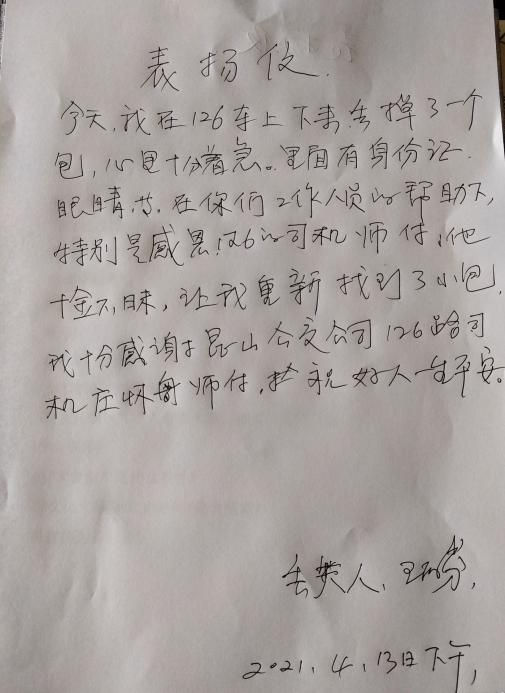 表扬仅.
今天,我在126车上下来丢掉了一个
包,心里十分着急。里面有身份证.
眼睛等.在你们工作人员的帮助下,
特别是感恩126的司机师付,他
十金不昧,让我重新找到了小包.
我十分感谢于昆山公交公司126路司
机庄怀舟师付,祝好人一生平安。
丢失人、王芬,
2021.4.13日下午,